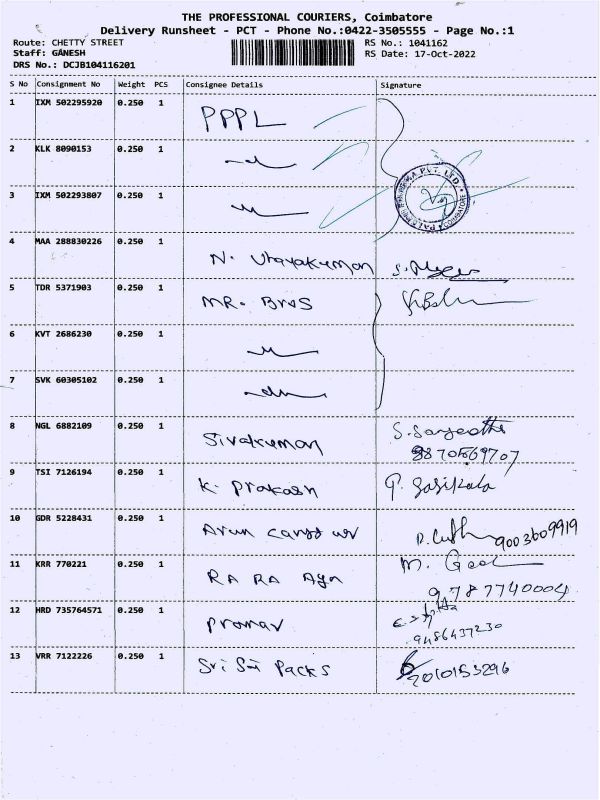 THE PROFESSIONAL COURIERS, Coimbatore
Delivery Runsheet - PCT - Phone No.:0422-3505555 - Page No.:1
Route: CHETTY STREET RS No.: 1041162
Staff: GANESH RS Date: 17-Oct-2022
DRS No.: DCJB104116201
S No Consignment No Weight PCS Consignee Details Signature
1 IXM 502295920 0.250 1 PPPL
2 KLK 8090153 0.250 1
3 IXM 502293807 0.250 1
PVT. LTD. COIMBATORE
4 MAA 288830226 0.250 1 N. Vijayakumar
5 TDR 5371903 0.250 1 MR. Bros
6 KVT 2686230 0.250 1
7 SVK 60305102 0.250 1
8 NGL 6882109 0.250 1 Sivakumar S. Sangeetha
9 TSI 7126194 0.250 1 K. Prakash P. Sasikala
10 GDR 5228431 0.250 1 Arun 9003609919
11 KRR 770221 0.250 1 RA RA M.
9787740004
12 HRD 735764571 0.250 1
9486437230
13 VRR 7122226 0.250 1 Sri Sai Packs 2010153296